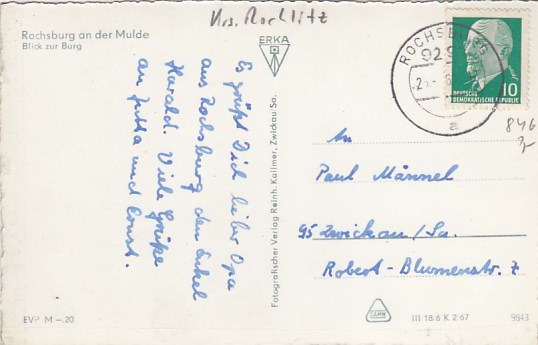 Krs. Rochlitz
Rochsburg an der Mulde
Blick zur Burg
ERKA
ROCHSBURG
929
DEUTSCHE
DEMOKRATISCHE REPUBLIK
10
a
846
Es grüßt Dich lieber Opa
aus Rochsburg den Enkel
Harald. Viele Grüße
an Jutta und Ernst.
Fotografischer Verlag Reinh. Kallmer, Zwickau Sa.
An
Paul Männel
95 Zwickau/Sa.
Robert-Blumenstr. 7
EVP M -.20
III/18/6 K 2 67
9843